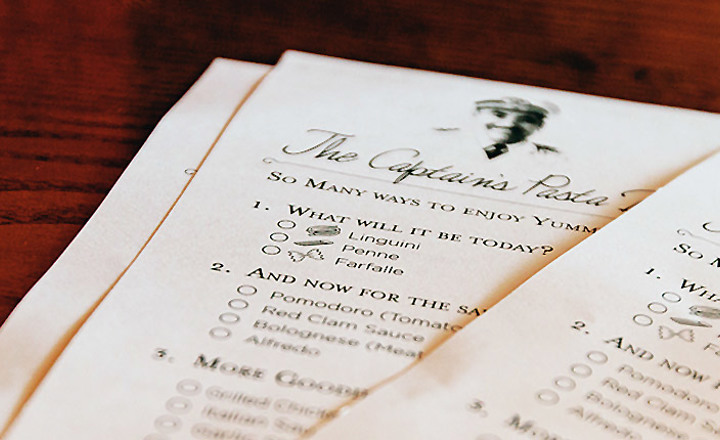 The Captain's Pasta
So Many ways to enjoy Yumm
1. What will it be today?
Linguini
Penne
Farfalle
2. And now for the sa
Pomodoro (Tomato
Red Clam Sauce
Bolognese (Meat
Alfredo
3. More Goodi
Grilled Chick
Italian Sau
So M
1. Wha
Fa
2. And now
Pomodoro
Red Clam S
Bolognese
Alfredo
3. Mor